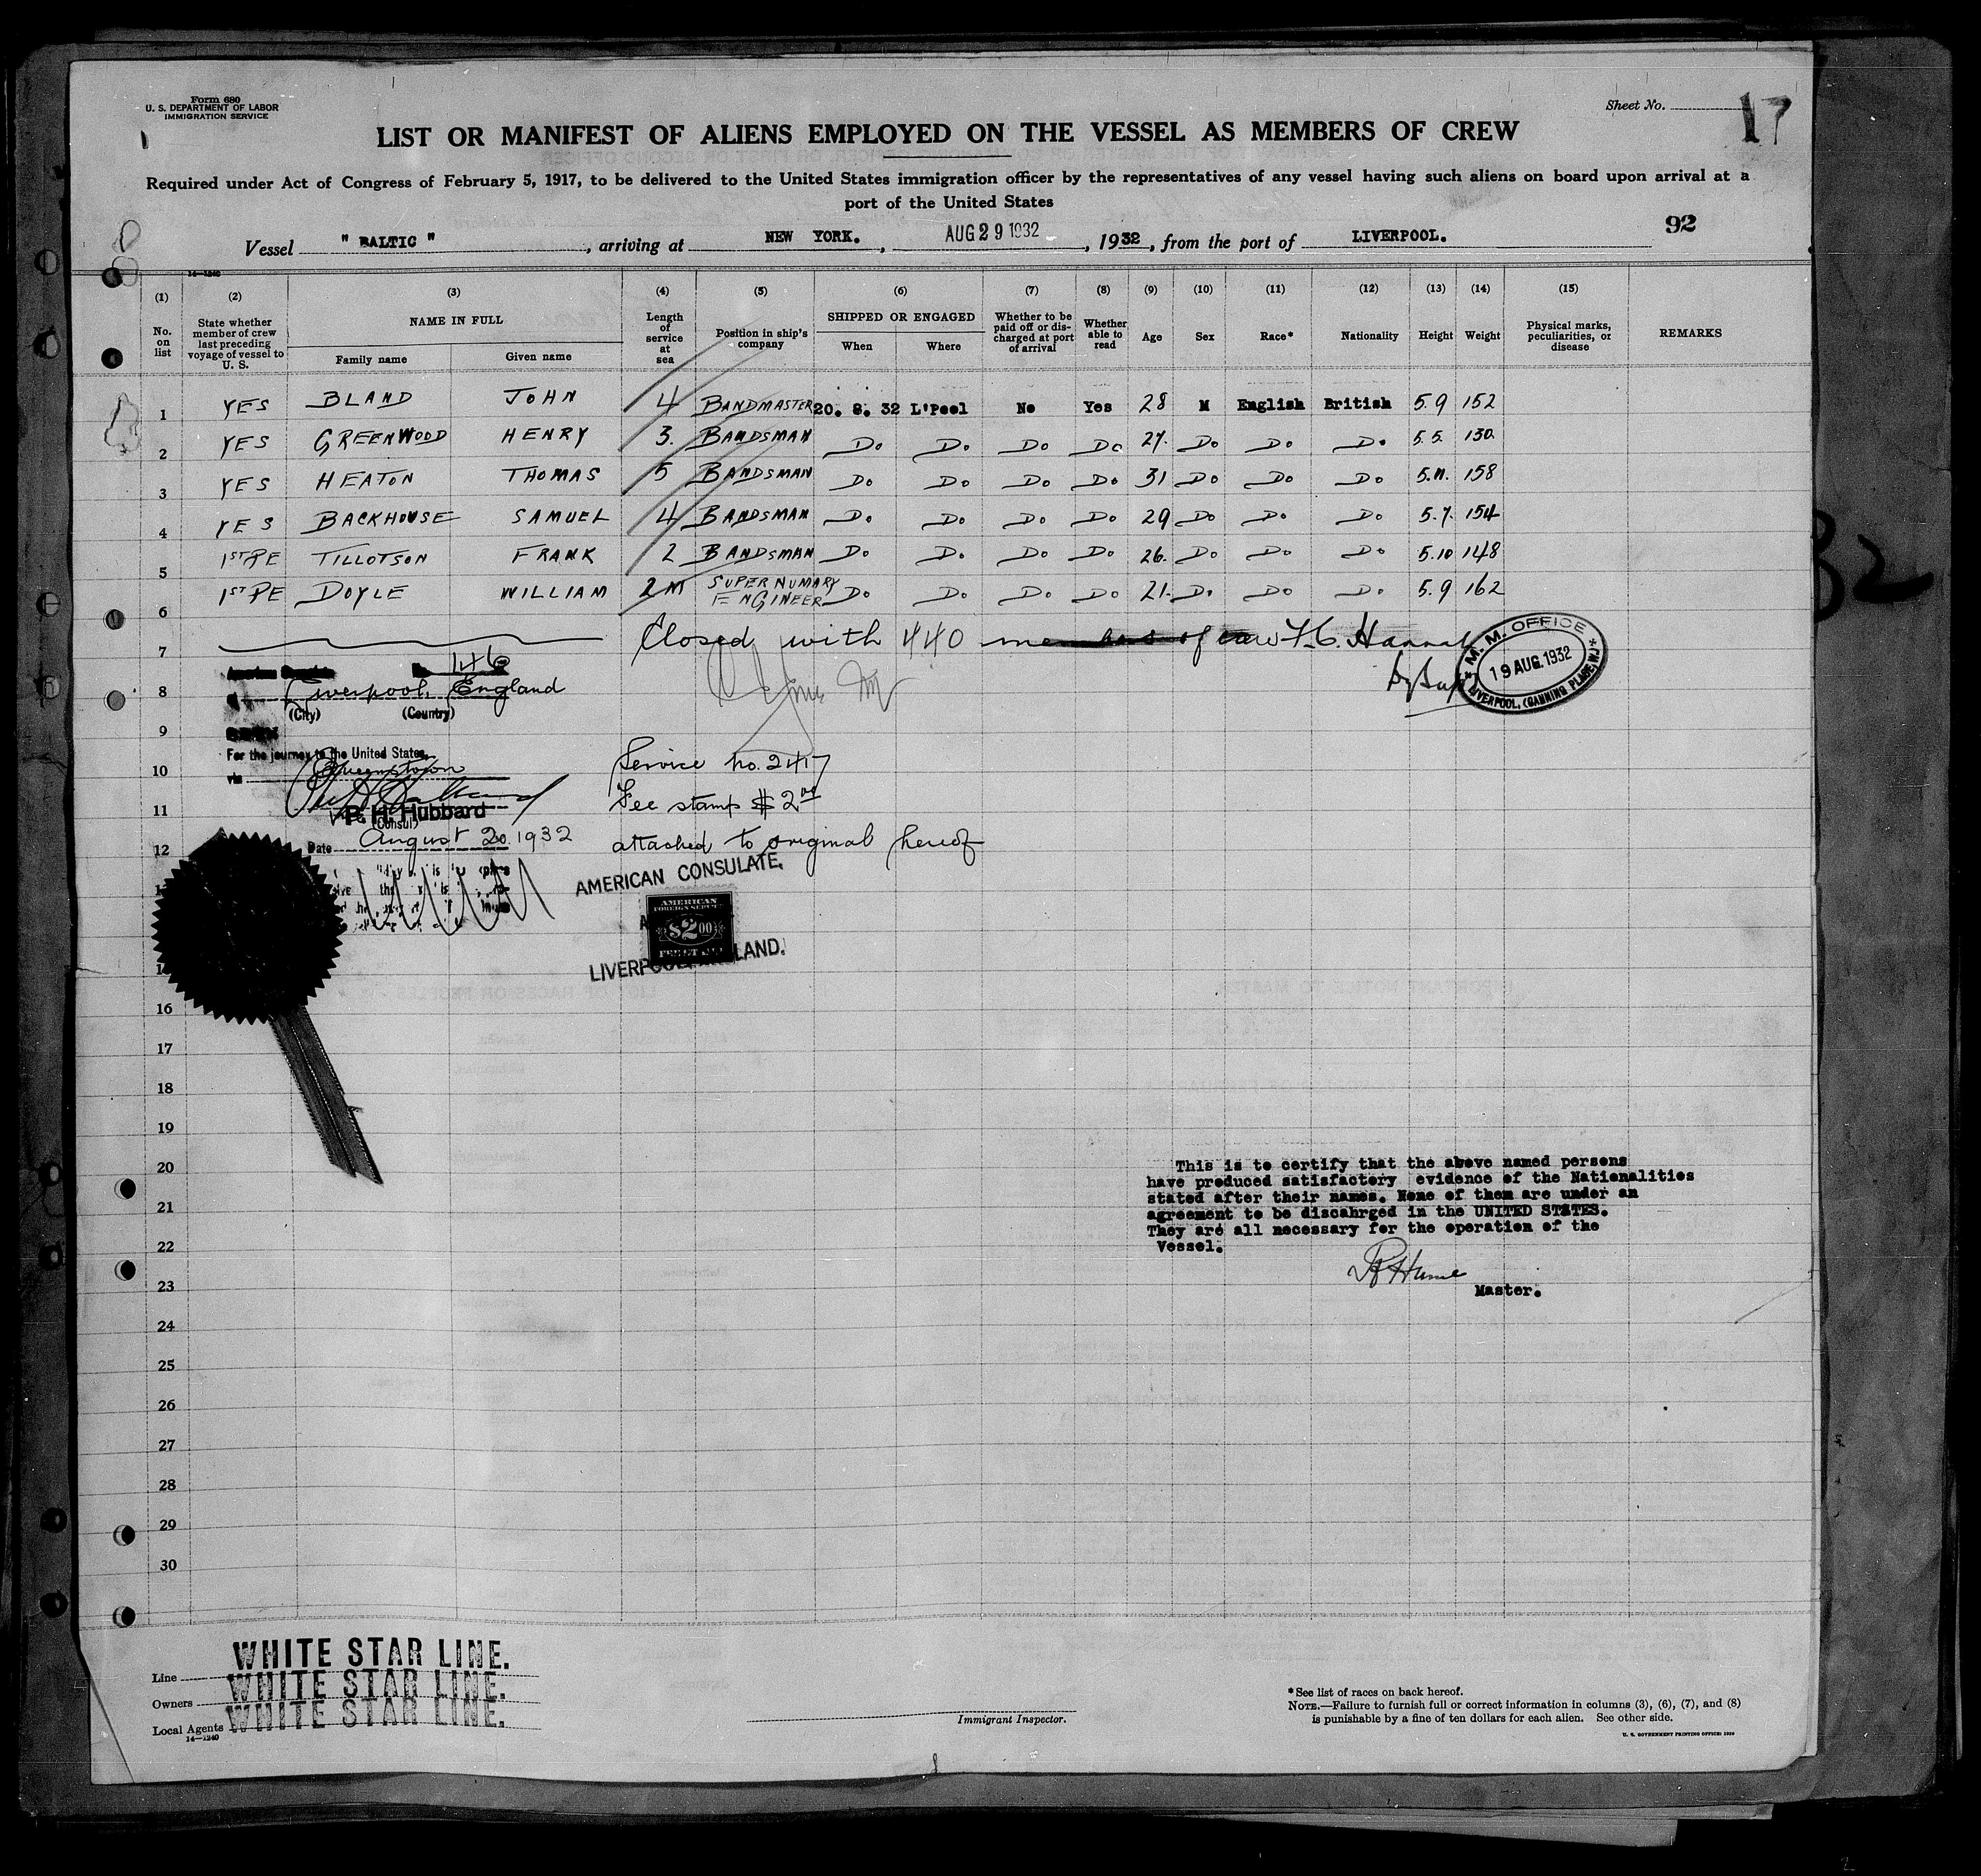 Form 680
U. S. DEPARTMENT OF LABOR
IMMIGRATION SERVICE
Sheet No. 17
LIST OR MANIFEST OF ALIENS EMPLOYED ON THE VESSEL AS MEMBERS OF CREW
Required under Act of Congress of February 5, 1917, to be delivered to the United States immigration officer by the representatives of any vessel having such aliens on board upon arrival at a
port of the United States
92
Vessel " BALTIC ", arriving at NEW YORK., AUG 29 1932, 1932, from the port of LIVERPOOL.
14—1240
(1) (2) (3) (4) (5) (6) (7) (8) (9) (10) (11) (12) (13) (14) (15)
No. on list State whether member of crew last preceding voyage of vessel to U. S. NAME IN FULL Length of service at sea Position in ship's company SHIPPED OR ENGAGED Whether to be paid off or discharged at port of arrival Whether able to read Age Sex Race* Nationality Height Weight Physical marks, peculiarities, or disease REMARKS
Family name Given name When Where
1 YES BLAND JOHN 4 BANDMASTER 20. 8. 32 L'Pool No Yes 28 M English British 5.9 152
2 YES GREENWOOD HENRY 3. BANDSMAN Do Do. Do Do 27. Do Do Do. 5.5. 130.
3 YES HEATON THOMAS 5 BANDSMAN Do Do. Do. Do. 31 Do Do Do. 5.11. 158
4 YES BACKHOUSE SAMUEL 4 BANDSMAN Do. Do. Do. Do. 29 Do Do. Do. 5.7. 154
5 1ST PE TILLOTSON FRANK 2 BANDSMAN Do. Do. Do. Do. 26. Do. Do. Do. 5.10 148
6 1ST PE DOYLE WILLIAM 2 M SUPERNUMARY ENGINEER Do. Do. Do. Do. 21. Do. Do Do. 5.9 162
7 Closed with 440 members of crew
M. M. OFFICE
19 AUG. 1932
LIVERPOOL, (CANNING PLACE, W.)
146
8 Liverpool, England
(City) (Country)
9
For the journey to the United States
10 via Queenstown
Service No. 2417
11 Fee stamp $2.00
P. H. Hubbard
(Consul)
12 Date August 20. 1932
attached to original hereof
AMERICAN CONSULATE,
AMERICAN
FOREIGN SERVICE
$2.00
LIVERPOOL, ENGLAND.
16
17
18
19
20
21
22
23
24
25
26
27
28
29
30
This is to certify that the above named persons
have produced satisfactory evidence of the Nationalities
stated after their names. None of them are under an
agreement to be discahrged in the UNITED STATES.
They are all necessary for the operation of the
Vessel.
Master.
Line WHITE STAR LINE.
Owners WHITE STAR LINE.
Local Agents WHITE STAR LINE.
14—1240
Immigrant Inspector.
*See list of races on back hereof.
NOTE.—Failure to furnish full or correct information in columns (3), (6), (7), and (8)
is punishable by a fine of ten dollars for each alien. See other side.